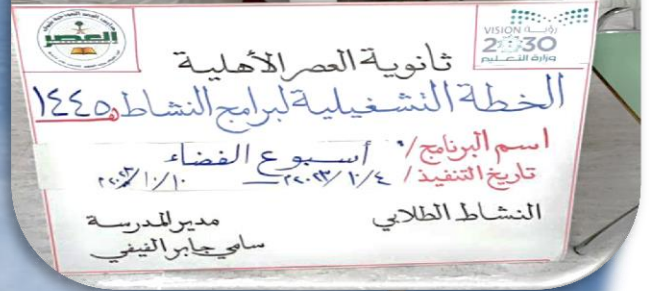 العصر
رؤيـة VISION
2030
وزارة التعـليم
ثانوية العصر الأهلية
الخطة التشغيلية لبرامج النشاط ١٤٤٥هـ
اسم البرنامج / أسبوع الفضاء
تاريخ التنفيذ / ٢٠٢٣/١٠/٤ — ٢٠٢٣/١٠/١٠
النشاط الطلابي
مدير المدرسة
سامي جابر الفيفي